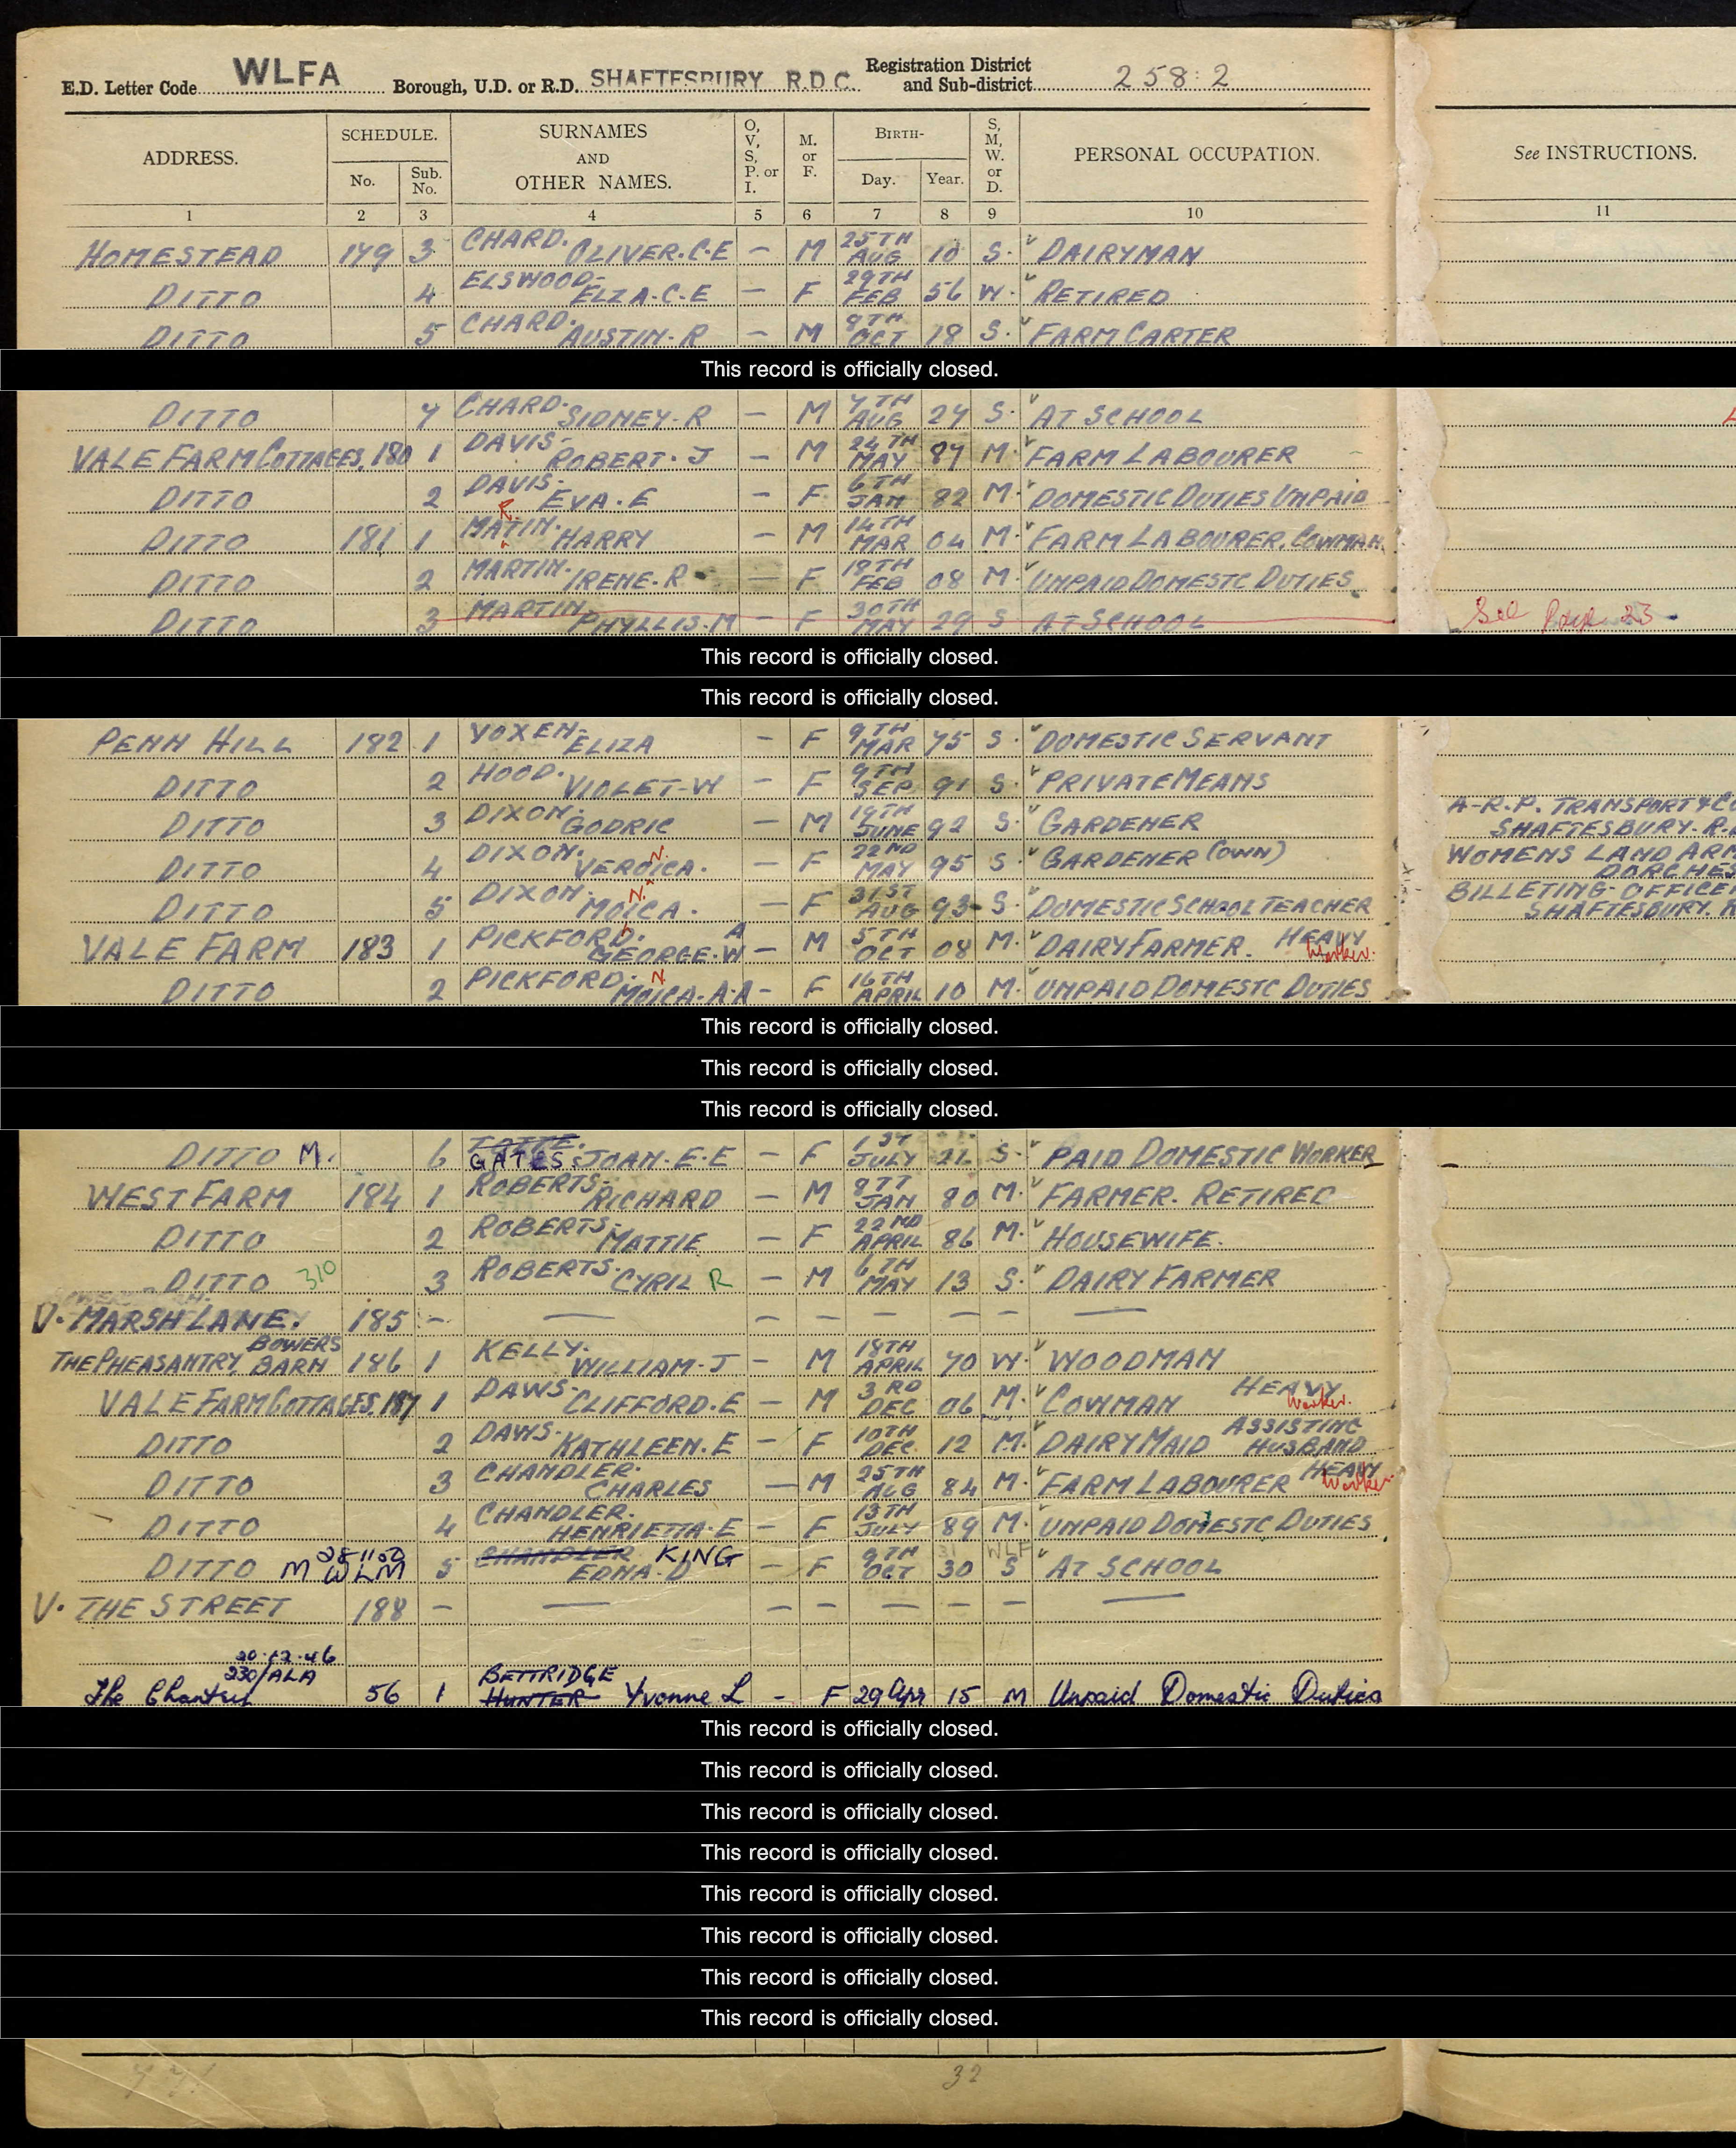 E.D. Letter Code WLFA Borough, U.D. or R.D. SHAFTESBURY R.D.C. Registration District and Sub-district 258:2
ADDRESS. SCHEDULE. No. Sub. No. SURNAMES AND OTHER NAMES. O, V, S, P. or I. M. or F. BIRTH- Day. Year. S, M, W. or D. PERSONAL OCCUPATION. See INSTRUCTIONS.
1 2 3 4 5 6 7 8 9 10 11
HOMESTEAD 179 3 CHARD. OLIVER.C.E – M 25TH AUG 10 S. DAIRYMAN
DITTO 4 ELSWOOD- ELZA.C.E – F 29TH FEB 56 W. RETIRED
DITTO 5 CHARD. AUSTIN.R – M 8TH OCT 18 S. FARM CARTER
This record is officially closed.
DITTO 7 CHARD. SIDNEY.R – M 7TH AUG 24 S. AT SCHOOL
VALE FARM COTTAGES, 180 1 DAVIS- ROBERT.J – M 24TH MAY 87 M. FARM LABOURER
DITTO 2 DAVIS- EVA.E – F. 6TH JAN 82 M. DOMESTIC DUTIES UNPAID
DITTO 181 1 MARTIN. HARRY – M 14TH MAR 04 M. FARM LABOURER. COWMAN.
DITTO 2 MARTIN. IRENE.R – F 19TH FEB 08 M. UNPAID DOMESTC DUTIES
DITTO 3 MARTIN PHYLLIS.M – F 30TH MAY 29 S AT SCHOOL See Page 23
This record is officially closed.
This record is officially closed.
PENN HILL 182 1 YOXEN- ELIZA – F 9TH MAR 75 S. DOMESTIC SERVANT
DITTO 2 HOOD. VIOLET-W – F 9TH SEP 91 S. PRIVATE MEANS
DITTO 3 DIXON. GODRIC – M 19TH JUNE 92 S. GARDENER A-R.P. TRANSPORT & CO SHAFTESBURY. R.
DITTO 4 DIXON. VERONICA. – F 22ND MAY 95 S GARDENER (OWN) WOMENS LAND ARM DORCHES
DITTO 5 DIXON. MONICA. – F 31ST AUG 93 S. DOMESTIC SCHOOL TEACHER BILLETING OFFICER SHAFTESBURY. R
VALE FARM 183 1 PICKFORD. GEORGE.W A – M 5TH OCT 08 M. DAIRY FARMER. HEAVY Worker.
DITTO 2 PICKFORD. MONICA.A.A – F 16TH APRIL 10 M. UNPAID DOMESTC DUTIES
This record is officially closed.
This record is officially closed.
This record is officially closed.
DITTO M. 6 GATES. JOAN.E.E – F 1ST JULY 21 S. PAID DOMESTIC WORKER
WEST FARM 184 1 ROBERTS- RICHARD – M 8TT JAN 80 M. FARMER. RETIRED
DITTO 2 ROBERTS- MATTIE – F 22ND APRIL 86 M. HOUSEWIFE.
DITTO 310 3 ROBERTS. CYRIL R – M 6TH MAY 13 S. DAIRY FARMER
V. MARSH LANE. 185 – – – – – – – –
THE PHEASANTRY, BOWERS BARN 186 1 KELLY. WILLIAM.J – M 18TH APRIL 70 W. WOODMAN
VALE FARM COTTAGES, 187 1 DAWS- CLIFFORD.E – M 3RD DEC 06 M. COWMAN HEAVY Worker.
DITTO 2 DAWS- KATHLEEN.E – F 10TH DEC. 12 M. DAIRY MAID ASSISTING HUSBAND
DITTO 3 CHANDLER. CHARLES – M 25TH AUG 84 M. FARM LABOURER HEAVY Worker
DITTO 4 CHANDLER. HENRIETTA.E – F 13TH JULY 89 M. UNPAID DOMESTC DUTIES
DITTO M 28.11.50 WLM 5 CHANDLER KING EDNA.D – F 9TH OCT 30 31 WLF S AT SCHOOL
V. THE STREET 188 – – – – – – – –
20.12.46 230/ALA
The Chantry 56 1 BETTRIDGE HUNTER Yvonne L – F 29 Apr 15 M Unpaid Domestic Duties
This record is officially closed.
This record is officially closed.
This record is officially closed.
This record is officially closed.
This record is officially closed.
This record is officially closed.
This record is officially closed.
This record is officially closed.
32